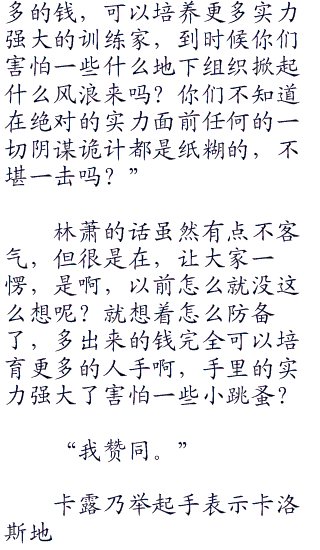 多的钱，可以培养更多实力
强大的训练家，到时候你们
害怕一些什么地下组织掀起
什么风浪来吗？你们不知道
在绝对的实力面前任何的一
切阴谋诡计都是纸糊的，不
堪一击吗？”
林萧的话虽然有点不客
气，但很是在，让大家一
愣，是啊，以前怎么就没这
么想呢？就想着怎么防备
了，多出来的钱完全可以培
育更多的人手啊，手里的实
力强大了害怕一些小跳蚤？
“我赞同。”
卡露乃举起手表示卡洛
斯地